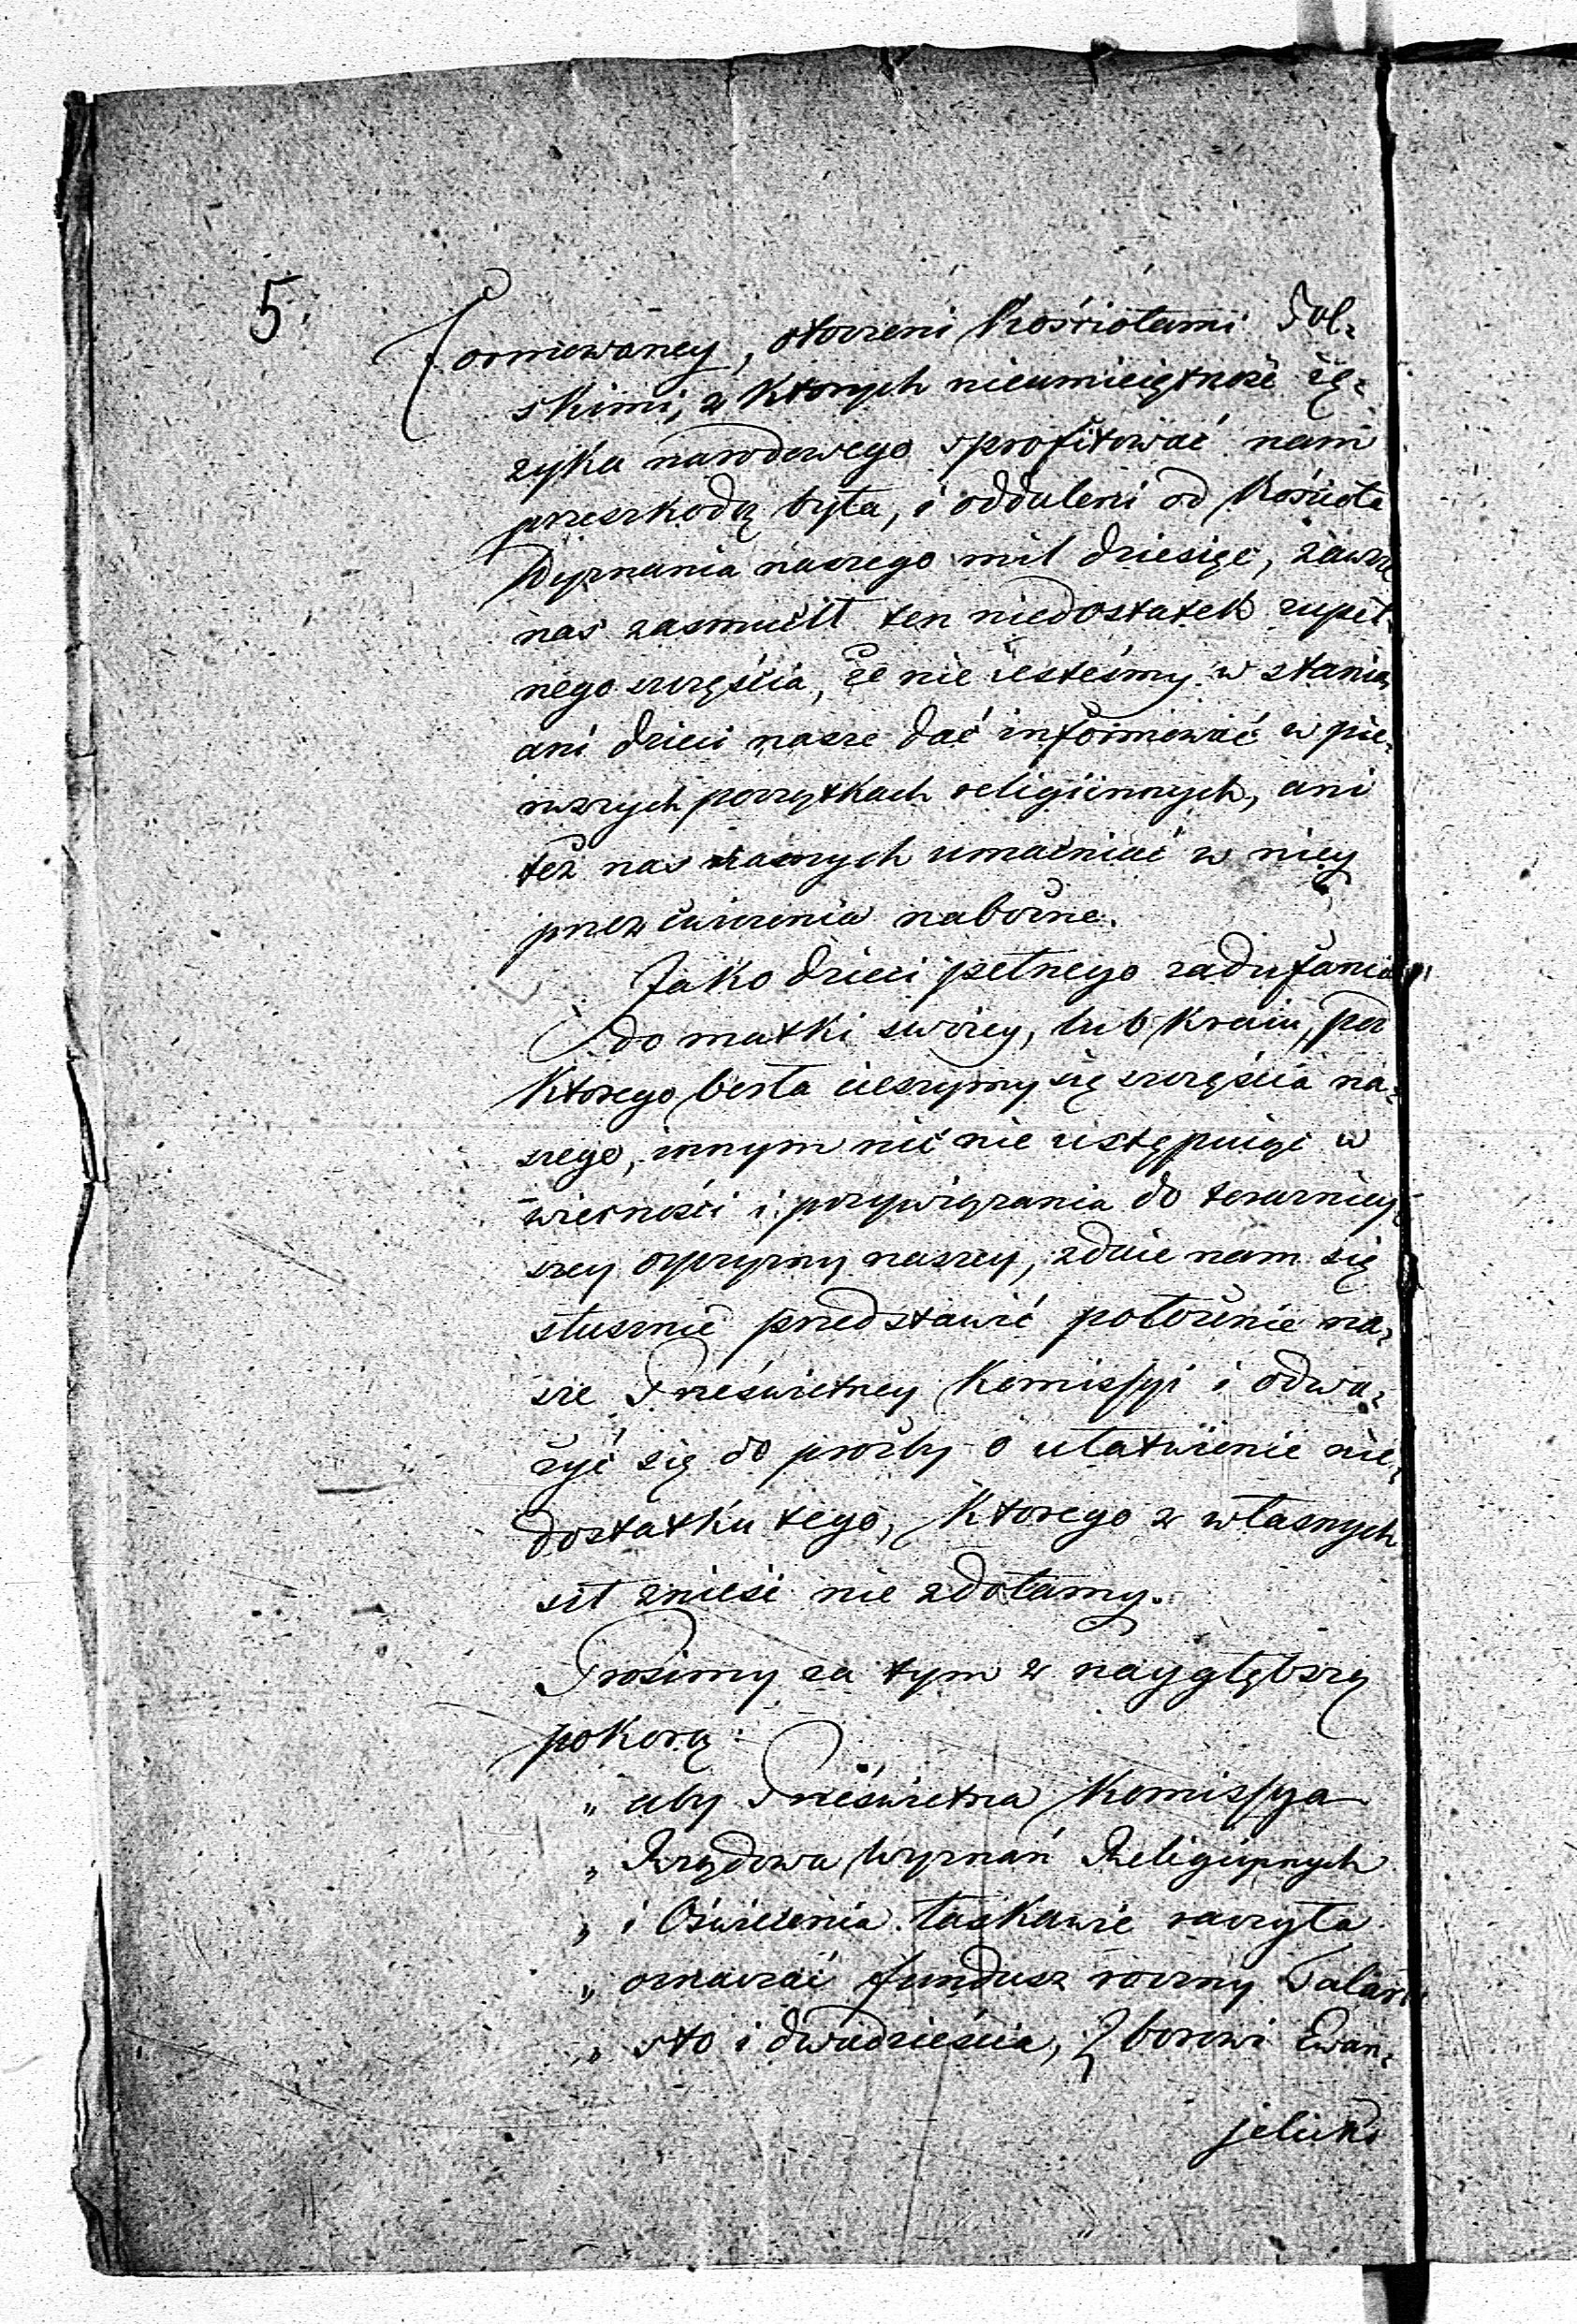 5.
formowaney, otoczeni Kościołami Pol-
skimi, z ktorych nieumieiętność ię-
zyka narodowego sprofitować nam
przeszkodą była, i oddaleni od Kościoła
Wyznania naszego mil dziesięć, zawsze
nas zasmucił ten niedostatek zupeł-
nego szczęścia, że nie iesteśmy w stanie,
ani dzieci nasze dać informować w pie-
rwszych początkach religiinych, ani
też nas samych umacniać w niey
przez ćwiczenia nabożne.
Jako dzieci pełnego zadufania
do matki swoiey, lub kraiu, pod
ktorego berła cieszymy się szczęścia na-
szego, innym nić nie ustępuiąc w
wierności i przywiązania do terazniey-
szey oyczyzny naszey, zdaie nam się
słusznie przedstawić położenie na-
sze Prześwietney Komissyi i odwa-
żyć się do proźby o ułatwienie nie-
dostatku tego, ktorego z własnych
sił znieść nie zdołamy.
Prosimy za tym z naygłębszą
pokorą
„ aby Prześwietna Komissya
„ Rządowa Wyznań Religiynych
„ i Oświecenia łaskawie raczyła
„ oznaczać fundusz roczny Talar
„ sto i dwadzieścia, Zborowi Ewan-
jelick